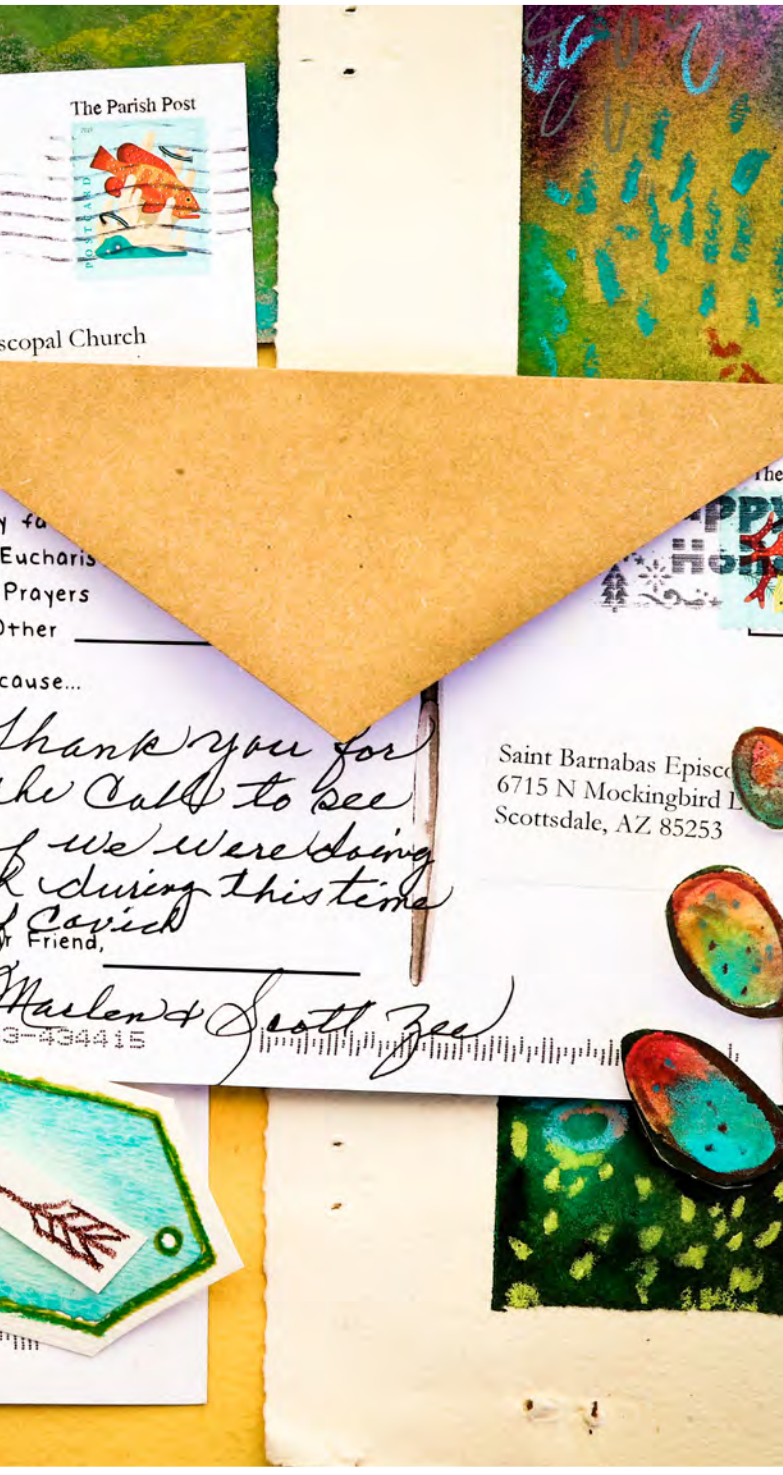 The Parish Post
POSTCARD
scopal Church
The
PPY
Eucharis
Prayers
Other
cause...
Thank you for
the Call to see
if we were doing
k during this time
of Covid
r Friend,
Marlen & Scott Zee
3-434415
Saint Barnabas Episco
6715 N Mockingbird L
Scottsdale, AZ 85253